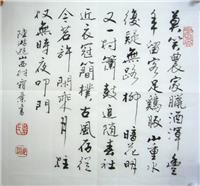 莫笑農家臘酒渾豐
年留客足鷄豚山重水
復疑無路柳暗花明
又一村簫鼓追隨春社
近衣冠簡樸古風存從
今若許閒乘月拄
杖無時夜叩門
陸游遊山西村